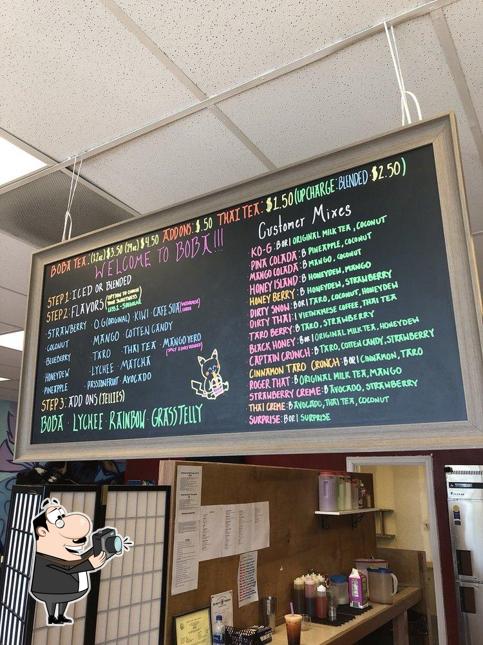 BOBA TEA: (12oz) $3.50 (24oz) $4.50 ADDONS: $.50 THAI TEA: $1.50 (UPCHARGE: BLENDED: $2.50)
WELCOME TO BOBA!!!
STEP 1: ICED OR BLENDED
STEP 2: FLAVORS
LESS-SUGAR
-STRAWBERRY
-COCONUT
BLUEBERRY
HONEYDEW
PINEAPPLE
O.G (ORIGINAL) · KIWI · CAFE SUA
MANGO · COTTEN CANDY
TARO · THAI TEA · MANGO YERO
· LYCHEE · MATCHA
· PASSIONFRUIT · AVOCADO
STEP 3: ADD ONS (JELLIES)
BOBA LYCHEE RAINBOW GRASSJELLY
Customer Mixes
KO-G: B OR I ORIGINAL MILK TEA, COCONUT
PINA COLADA: B PINEAPPLE, COCONUT
MANGO COLADA: B MANGO, COCONUT
HONEY ISLAND: B HONEYDEW, MANGO
HONEY BERRY: B HONEYDEW, STRAWBERRY
DIRTY SNOW: B OR I TARO, COCONUT, HONEYDEW
DIRTY THAI: I VIETNAMESE COFFEE, THAI TEA
TARO BERRY: B TARO, STRAWBERRY
BLACK HONEY: B OR I ORIGINAL MILK TEA, HONEYDEW
CAPTAIN CRUNCH: B TARO, COTTEN CANDY, STRAWBERRY
CINNAMON TARO CRUNCH: B OR I CINNAMON, TARO
ROGER THAT: B ORIGINAL MILK TEA, MANGO
STRAWBERRY CREME: B AVOCADO, STRAWBERRY
THAI CREME: B AVOCADO, THAI TEA, COCONUT
SURPRISE: B OR I SURPRISE